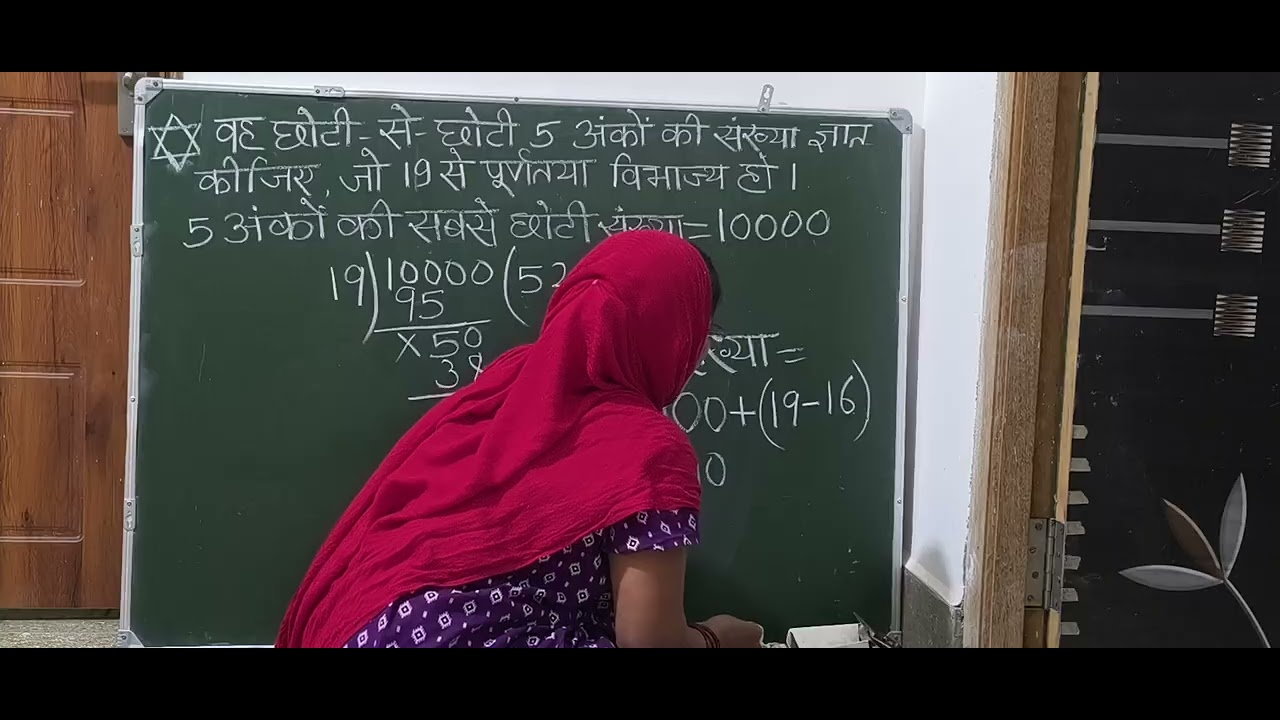 वह छोटी-से-छोटी 5 अंकों की संख्या ज्ञात
कीजिए, जो 19 से पूर्णतया विभाज्य हो ।
5 अंकों की सबसे छोटी संख्या=10000
19)10000(52
95
×50
38
=
00+(19-16)
0